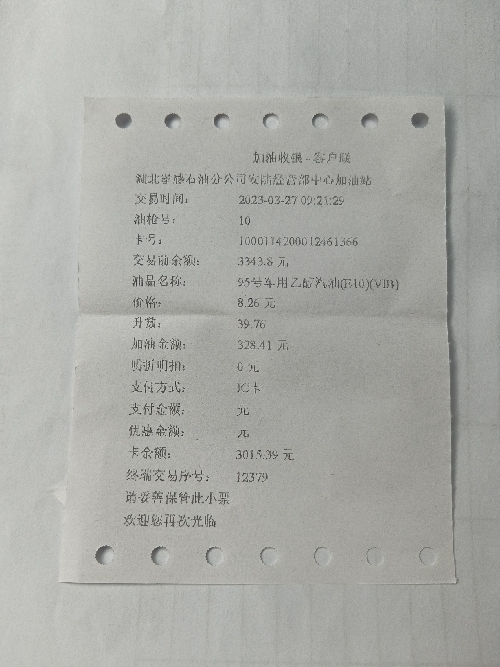 加油收银 - 客户联
湖北孝感石油分公司安陆经营部中心加油站
交易时间: 2023-03-27 09:21:29
油枪号: 10
卡号: 1000114200012461366
交易前余额: 3343.8 元
油品名称: 95号车用乙醇汽油(E10)(VIB)
价格: 8.26 元
升数: 39.76
加油金额: 328.41 元
0 元
支付方式: IC卡
支付金额: 元
优惠金额: 元
卡余额: 3015.39 元
终端交易序号: 12379
请妥善保管此小票
欢迎您再次光临